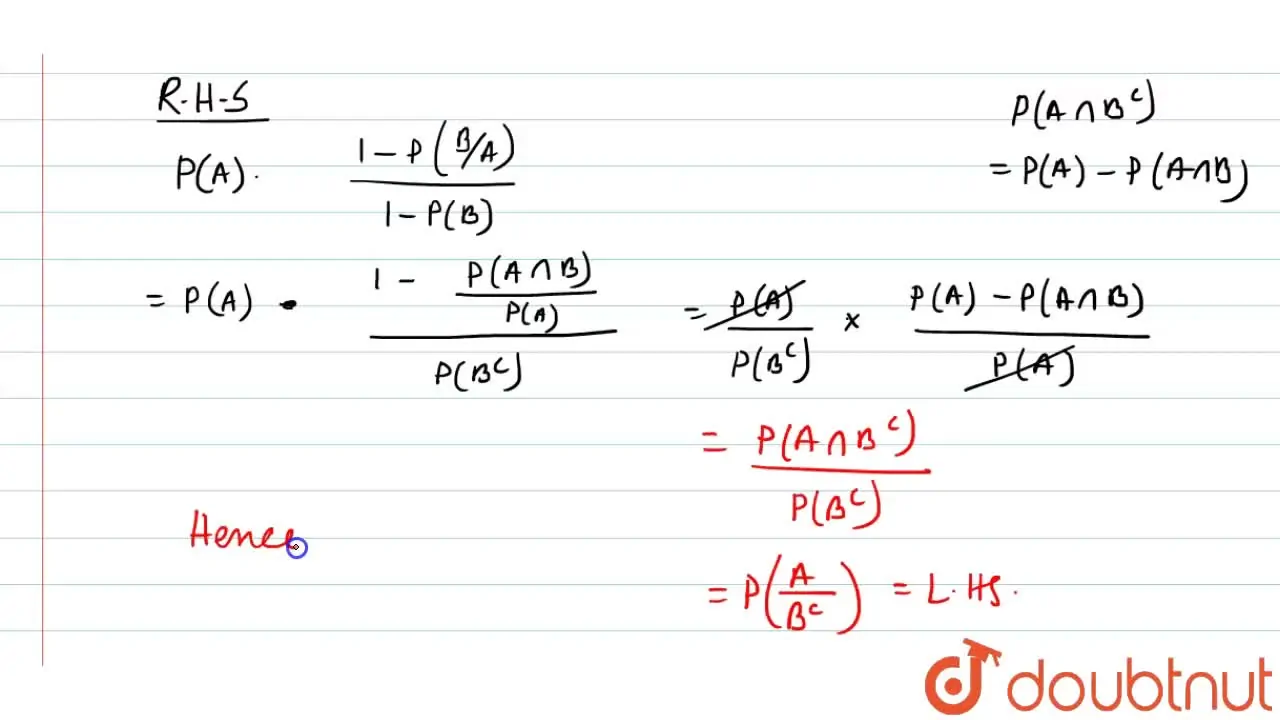 R.H.S
P(A) . (1 - P(B/A)) / (1 - P(B))
P(A ∩ B^c)
= P(A) - P(A∩B)
= P(A) . (1 - P(A ∩ B)/P(A)) / P(B^c)
= P(A)/P(B^c) × (P(A) - P(A ∩ B))/P(A)
= P(A ∩ B^c) / P(B^c)
= P(A/B^c) = L.HS.
Hence
doubtnut